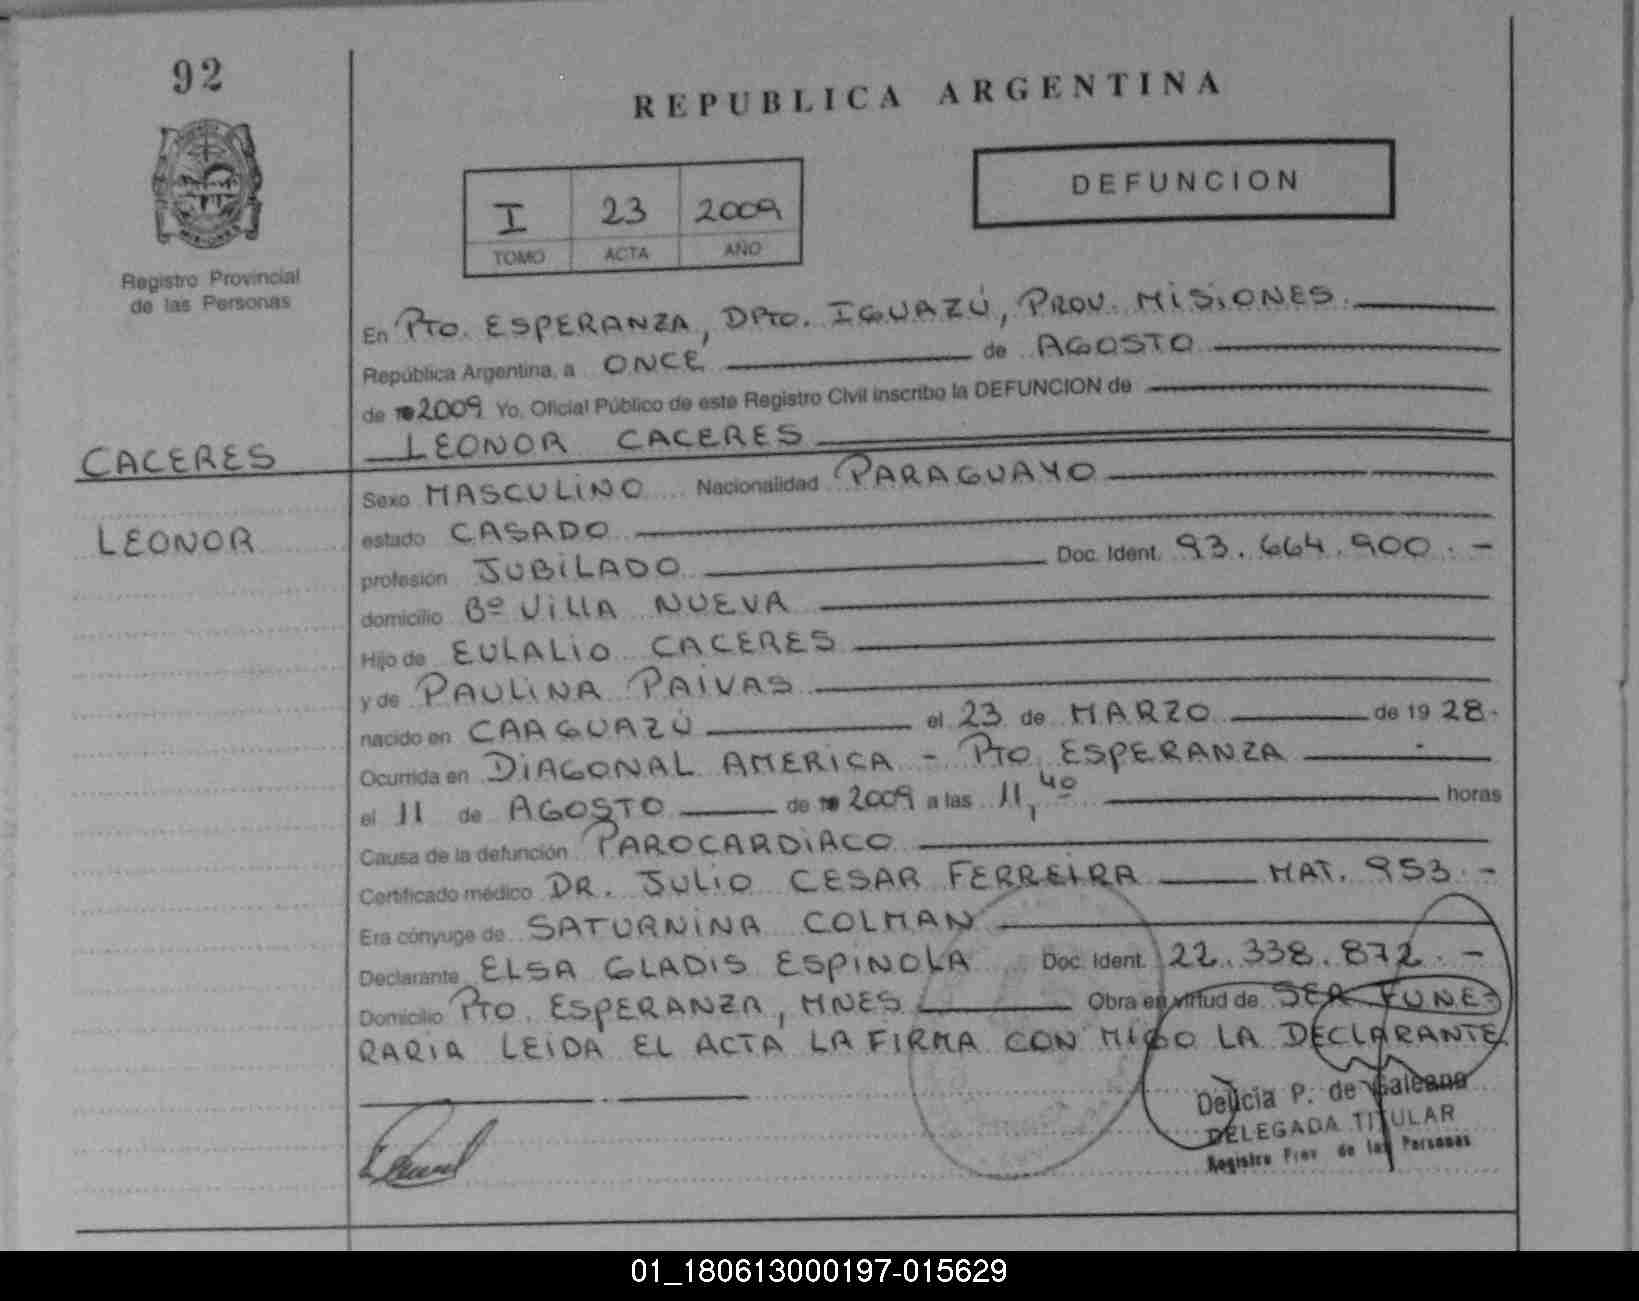 92
REPUBLICA ARGENTINA
DEFUNCION
I 23 2009
TOMO ACTA AÑO
Registro Provincial
de las Personas
En PTO. ESPERANZA, DPTO. IGUAZÚ, PROV. MISIONES.
República Argentina, a ONCE de AGOSTO
de 2009 Yo, Oficial Público de este Registro Civil inscribo la DEFUNCION de
CACERES
LEONOR CACERES
Sexo MASCULINO Nacionalidad PARAGUAYO
LEONOR
estado CASADO
profesión JUBILADO Doc. Ident. 93.664.900.-
domicilio Bº VILLA NUEVA
Hijo de EULALIO CACERES
y de PAULINA PAIVAS
nacido en CAAGUAZÚ el 23 de MARZO de 19 28.
Ocurrida en DIAGONAL AMERICA - PTO. ESPERANZA
el 11 de AGOSTO de 2009 a las 11,40 horas
Causa de la defunción PAROCARDIACO
Certificado médico DR. JULIO CESAR FERREIRA MAT. 953.-
Era cónyuge de SATURNINA COLMAN
Declarante ELSA GLADIS ESPINOLA Doc. Ident. 22.338.872.-
Domicilio PTO. ESPERANZA, MNES Obra en virtud de SER FUNE-
RARIA LEIDA EL ACTA LA FIRMA CON MIGO LA DECLARANTE.
Delicia P. de Galeano
DELEGADA TITULAR
Registro Prov. de las Personas
01_180613000197-015629